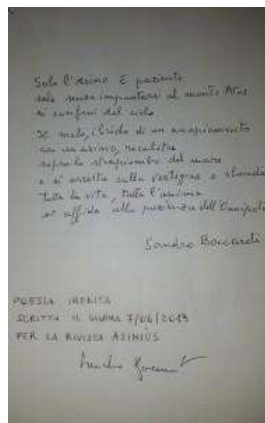 Solo l'asino è paziente
sale senza impuntarsi al monte Athos
ai confini del cielo
Il mulo, ibrido di un accoppiamento
con un asino, recalcitra
sopra lo strapiombo del mare
e si arresta sulla vertigine e
tutta la vita, tutta l'anima
si affida alla pazienza dell'
Sandro Boccardi
POESIA INEDITA
SCRITTA IL GIORNO 7/06/2013
PER LA RIVISTA ASINIUS